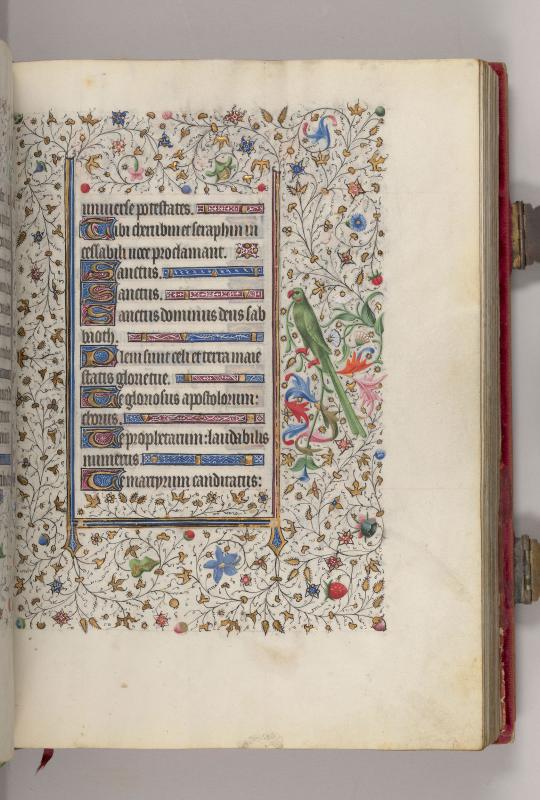 universe potestates.
Tibi cherubin et seraphin in
cessabili uoce proclamant.
Sanctus
Sanctus
Sanctus dominus deus sab
baoth.
Pleni sunt celi et terra maie
statis glorie tue.
Te gloriosus apostolorum:
chorus.
Te prophetarum: laudabilis
numerus
Te martyrum candidatus: